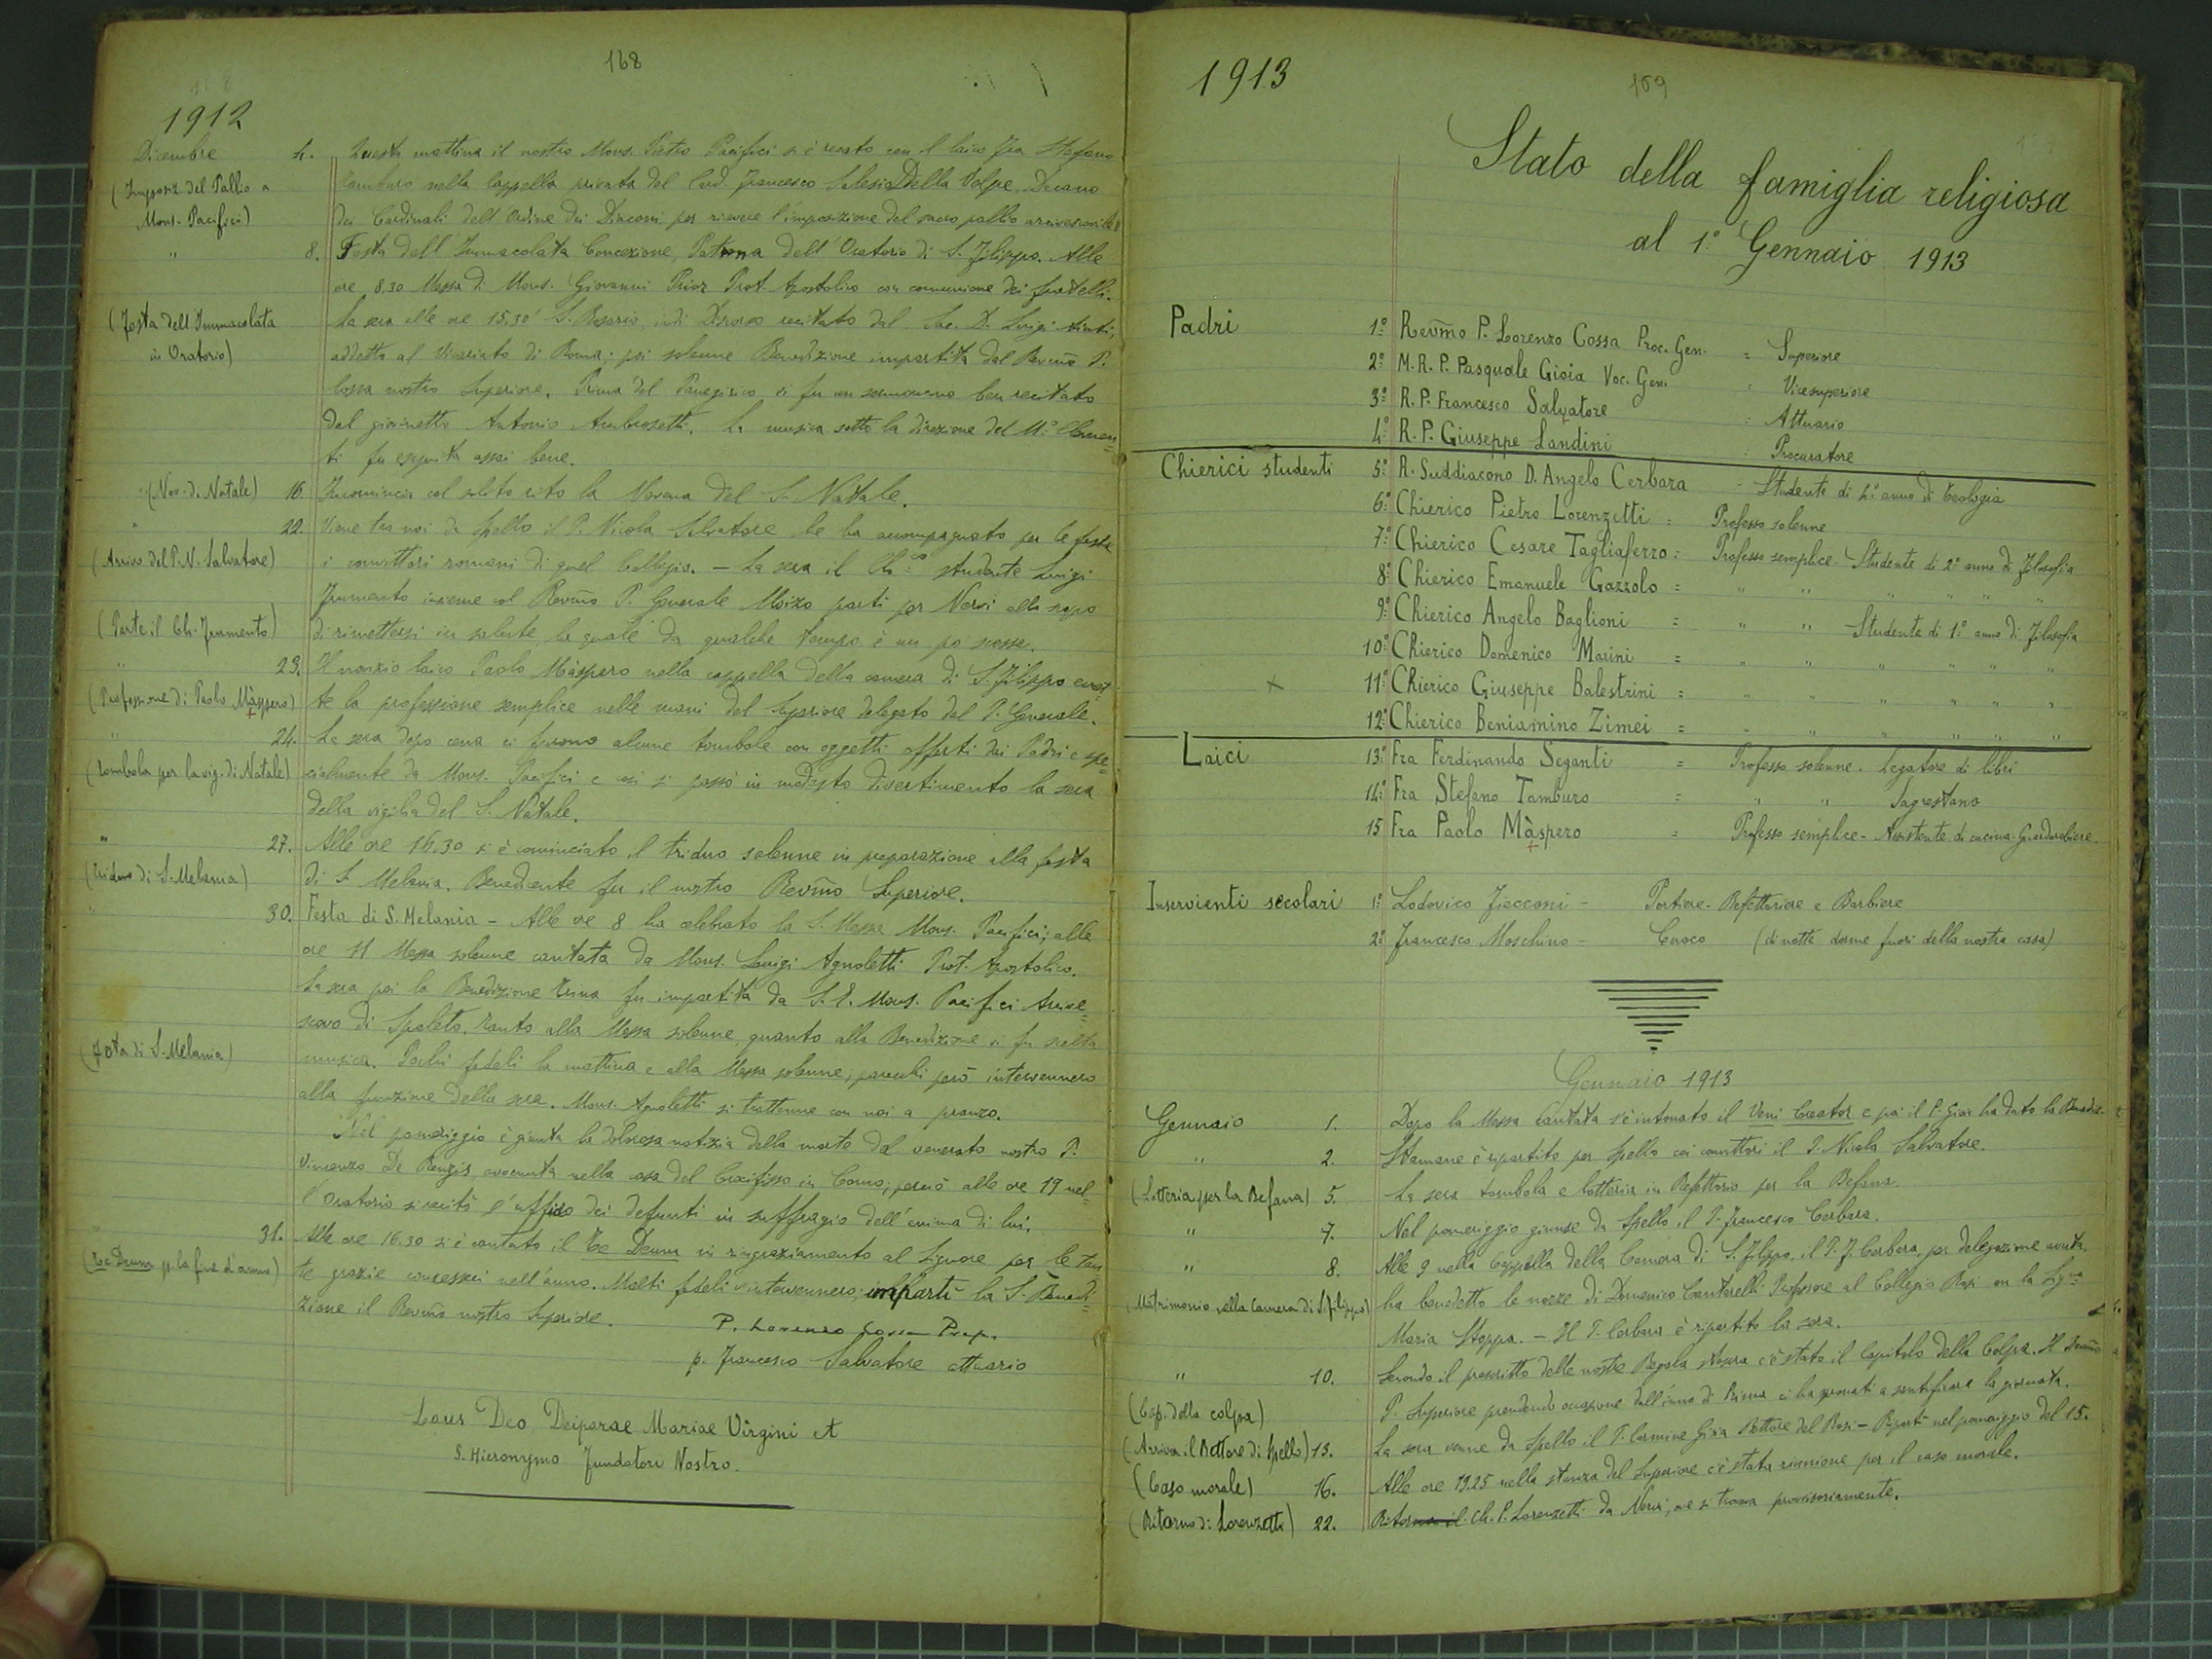 168
1912
Dicembre 4. Questa mattina il nostro Mons. Pietro Pacifici si è recato con il laico fra Stefano
(Imposiz. del Pallio a Tamburo nella cappella privata del Card. Francesco Salesio Della Volpe, Decano
Mons. Pacifici) dei Cardinali dell'Ordine dei Diaconi per ricevere l'imposizione del sacro pallio arcivescovile.
" 8. Festa dell'Immacolata Concezione, Patrona dell'Oratorio di S. Filippo. Alle
ore 8,30 Messa di Mons. Giovanni Prior Prot. Apostolico con comunione dei fratelli.
(Festa dell'Immacolata La sera alle ore 15,30 S. Rosario, indi Discorso recitato dal Sac. D. Luigi
in Oratorio) addetto al Vicariato di Roma; poi solenne Benedizione impartita dal Revm̃o P.
Cossa nostro Superiore. Prima del Panegirico vi fu un sermoncino ben recitato
dal giovinetto Antonio Ambrosetti. La musica sotto la direzione del M.°
ti fu eseguita assai bene.
(Nov. di Natale) 16. Incomincia col solito rito la Novena del S. Natale.
" 22. Viene tra noi da Spello il P. Nicola Salvatore che ha accompagnato per le feste
(Arrivo del P. N. Salvatore) i convittori romani di quel Collegio. - La sera il Ch.co studente Luigi
Frumento insieme col Revm̃o P. Generale Moizo partì per Nervi allo scopo
(Parte il Ch. Frumento) di rimettersi in salute, la quale da qualche tempo è un po' scossa.
" 23. Il novizio laico Paolo Màspero nella cappella della camera di S. Filippo emet=
(Professione di Paolo Màspero) te la professione semplice nelle mani del Superiore delegato dal P. Generale.
" 24. La sera dopo cena ci furono alcune tombole con oggetti offerti dai Padri e spe=
(Tombola per la vig. di Natale) cialmente da Mons. Pacifici e così si passò in modesto divertimento la sera
della vigilia del S. Natale.
" 27. Alle ore 16.30 si è cominciato il triduo solenne in preparazione alla festa
(Triduo di S. Melania) di S. Melania. Benedicente fu il nostro Revm̃o Superiore.
" 30. Festa di S. Melania - Alle ore 8 ha celebrato la S. Messa Mons. Pacifici; alle
ore 11 Messa solenne cantata da Mons. Luigi Agnoletti Prot. Apostolico.
La sera poi la Benedizione fu impartita da S. E. Mons. Pacifici Arcive=
scovo di Spoleto. Tanto alla Messa solenne, quanto alla Benedizione vi fu scelta
(Festa di S. Melania) musica. Pochi fedeli la mattina e alla Messa solenne; parecchi però intervennero
alla funzione della sera. Mons. Agnoletti si trattenne con noi a pranzo.
Nel pomeriggio è giunta la dolorosa notizia della morte del venerato nostro P.
Vincenzo De Renzis avvenuta nella casa del Crocifisso in Como; perciò alle ore 19 nel=
l'oratorio si recitò l'uffizio dei defunti in suffragio dell'anima di lui.
31. Alle ore 16.30 si è cantato il Te Deum in ringraziamento al Signore per le tan
(Te Deum p. la fine d'anno) te grazie concesseci nell'anno. Molti fedeli v'intervennero; impartì la S. Benedi=
zione il Revm̃o nostro Superiore.
P. Lorenzo Cossa Prep.
p. Francesco Salvatore attuario
Laus Deo, Deiparae Mariae Virgini et
S. Hieronymo Fundatori Nostro.
1913
169
Stato della famiglia religiosa
al 1° Gennaio 1913
Padri 1° Revm̃o P. Lorenzo Cossa Proc. Gen. = Superiore
2° M.R.P. Pasquale Gioia Voc. Gen. = Vicesuperiore
3° R. P. Francesco Salvatore = Attuario
4° R. P. Giuseppe Landini = Procuratore
Chierici studenti 5° R. Suddiacono D. Angelo Cerbara - Studente di 4° anno di teologia
6° Chierico Pietro Lorenzetti = Professo solenne
7° Chierico Cesare Tagliaferro = Professo semplice - Studente di 2° anno di filosofia
8° Chierico Emanuele Gazzolo = " " " " " "
9° Chierico Angelo Baglioni = " " Studente di 1° anno di filosofia
10° Chierico Domenico Marini = " " " " " "
x 11° Chierico Giuseppe Balestrini = " " " " " "
12° Chierico Beniamino Zimei = " " " " " "
Laici 13° Fra Ferdinando Seganti = Professo solenne - Legatore di libri
14° Fra Stefano Tamburo = " " Sagrestano
15 Fra Paolo Màspero = Professo semplice - Assistente di cucina - Guardarobiere
Inservienti secolari 1° Lodovico Fiacconi - Portiere - Refettoriere e Barbiere
2° Francesco Moschino - Cuoco (di notte dorme fuori della nostra casa)
Gennaio 1913
Gennaio 1. Dopo la Messa cantata s'è intonato il Veni Creator e poi il P. Gioia ha dato la Bened.
" 2. Stamane è ripartito per Spello coi convittori il P. Nicola Salvatore.
(Lotteria per la Befana) 5. La sera tombola e lotteria in Refettorio per la Befana.
" 7. Nel pomeriggio giunse da Spello il P. Francesco Cerbara.
" 8. Alle 9 nella Cappella della Camera di S. Filippo, il P. F. Cerbara, per delegazione avuta,
(Matrimonio nella Camera di S. Filippo) ha benedetto le nozze di Domenico Cantarelli Professore al Collegio Rosi con la Sig.na
Maria Stoppa. - Il P. Cerbara è ripartito la sera.
" 10. Secondo il prescritto delle nostre Regole stasera c'è stato il Capitolo della Colpa. Il Revm̃o
(Cap. della colpa) P. Superiore prendendo occasione dall'inno di Prima ci ha spronati a santificare la giornata.
(Arriva il Rettore di Spello) 13. La sera venne da Spello il P. Carmine Gioia Rettore del Rosi - Ripartì nel pomeriggio del 15.
(Caso morale) 16. Alle ore 19.25 nella stanza del Superiore c'è stata riunione per il caso morale.
(Ritorno di Lorenzetti) 22. Ritorna il Ch. P. Lorenzetti da Nervi, ove si trova provvisoriamente.